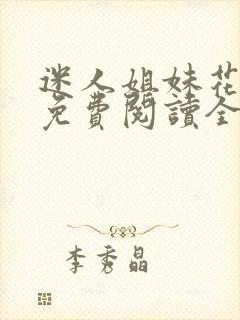 迷人姐妹花
免費閱讀全
李秀晶